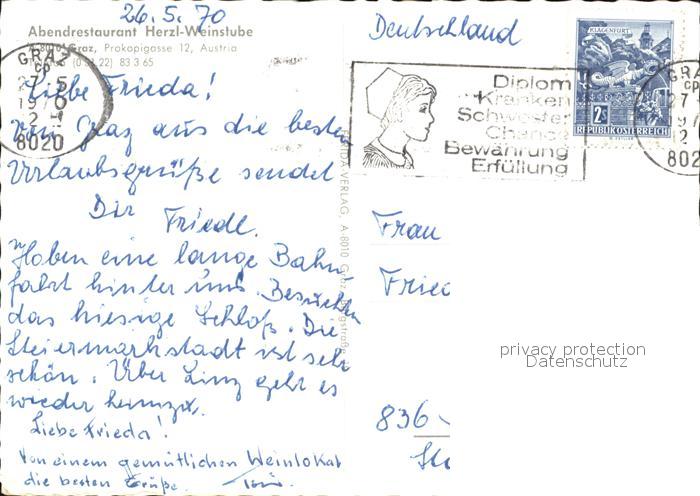 26.5.70
Abendrestaurant Herzl-Weinstube
A-8010 Graz, Prokopigasse 12, Austria
83 3 65
Liebe Frieda!
Von Graz aus die besten
Urlaubsgrüße sendet
Dir Friedl.
Haben eine lange Bahn-
fahrt hinter uns. Besuchten
das hiesige Schloß. Die
Steiermarkstadt ist sehr
schön. Über Linz geht es
wieder heimzu.
Liebe Frieda!
Von einem gemütlichen Weinlokal
die besten Grüße.
VERLAG, A-8010 Graz
Deutschland
KLAGENFURT
2S
REPUBLIK ÖSTERREICH
Diplom
Kranken
Schwester
Chance
Bewährung
Erfüllung
GRAZ
8020
GRA
802
Frau
Fried
836
privacy protection
Datenschutz